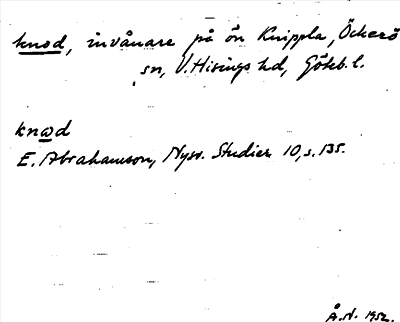 knod, invånare på ön Knippla, Öckerö
sn, V. Hisings hd, Göteb. l.
knωd
E. Abrahamson, Nysv. Studier 10, s. 135.
Å.H. 1952.